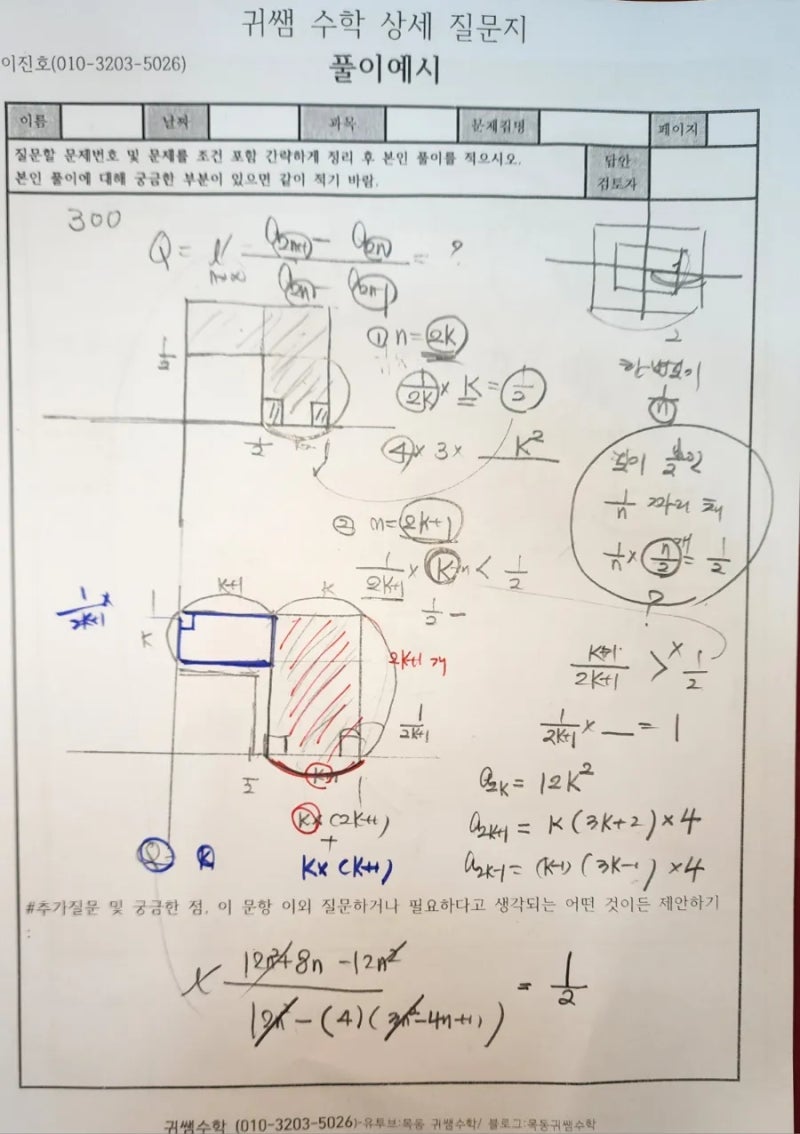 귀쌤 수학 상세 질문지
이진호(010-3203-5026)
풀이예시
이름 날짜 과목 문제집명 페이지
질문할 문제번호 및 문제를 조건 포함 간략하게 정리 후 본인 풀이를 적으시오.
본인 풀이에 대해 궁금한 부분이 있으면 같이 적기 바람.
답안
검토자
300
Q = lim n→∞ (a_{2n+1} - a_{2n}) / (a_{2n} - a_{2n-1}) = ?
1
2
① n = 2k
1/2
한 변길이
1/n
1/2k × k = 1/2
1/2
1
④ × 3 × k²
길이 1/2 안
1/n 짜리
1/n × n/2 개 = 1/2
?
② n = 2k+1
1/2k+1 × k < 1/2
1/2 -
k+1
k
1/2k+1 ×
1
k
2k+1 개
k+1/2k+1 > 1/2
1/2k+1
1/2k+1 × __ = 1
1/2
k
1
a_{2k} = 12k²
k × (2k+1)
+
k × (k+1)
a_{2k+1} = k(3k+2) × 4
a_{2k-1} = (k-1)(3k-1) × 4
#추가질문 및 궁금한 점, 이 문항 이외 질문하거나 필요하다고 생각되는 어떤 것이든 제안하기
:
(12n²+8n - 12n²) / (12n² - (4)(3n²-4n+1)) = 1/2
귀쌤수학 (010-3203-5026)-유투브:목동 귀쌤수학/ 블로그:목동귀쌤수학